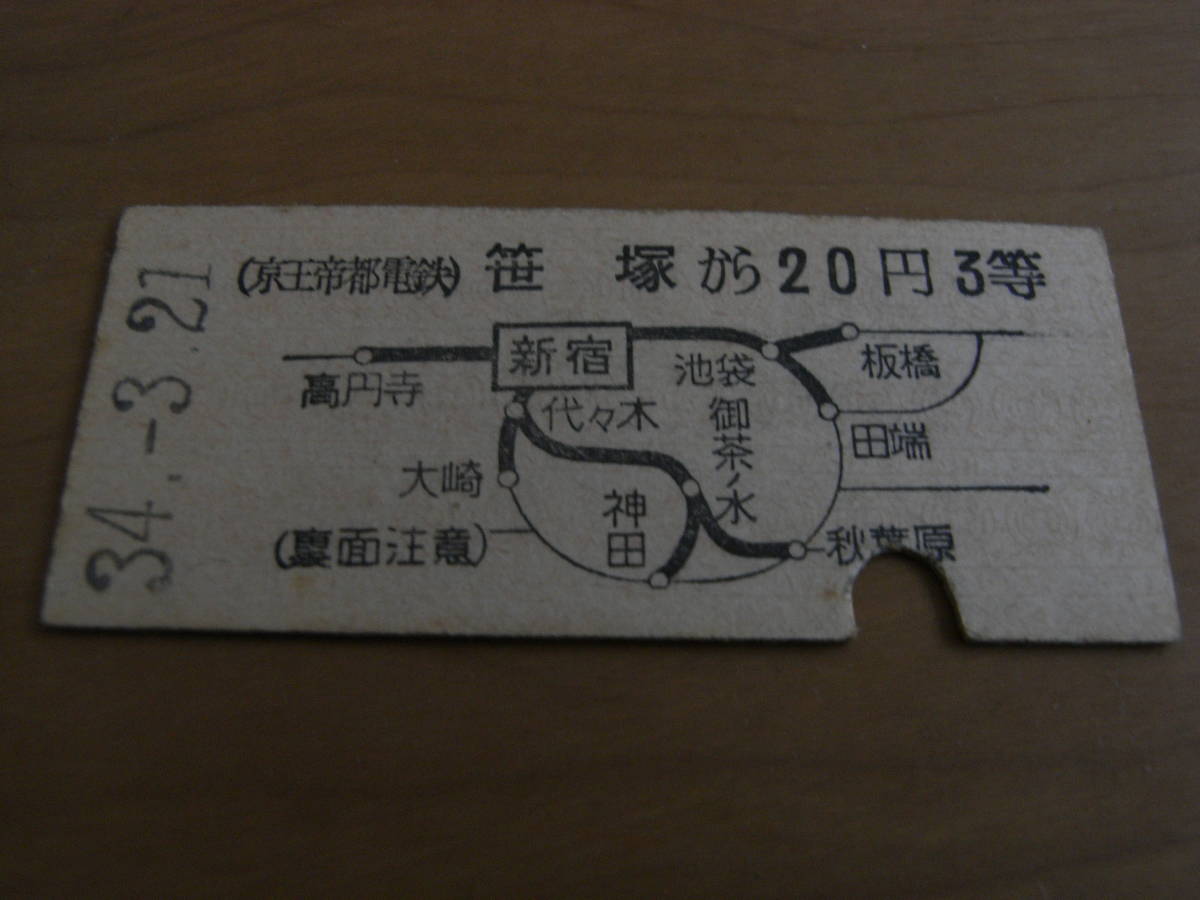 (京王帝都電鉄) 笹塚から20円 3等
新宿
高円寺
池袋
板橋
代々木
御茶ノ水
田端
大崎
神田
秋葉原
(裏面注意)
34.-3.21